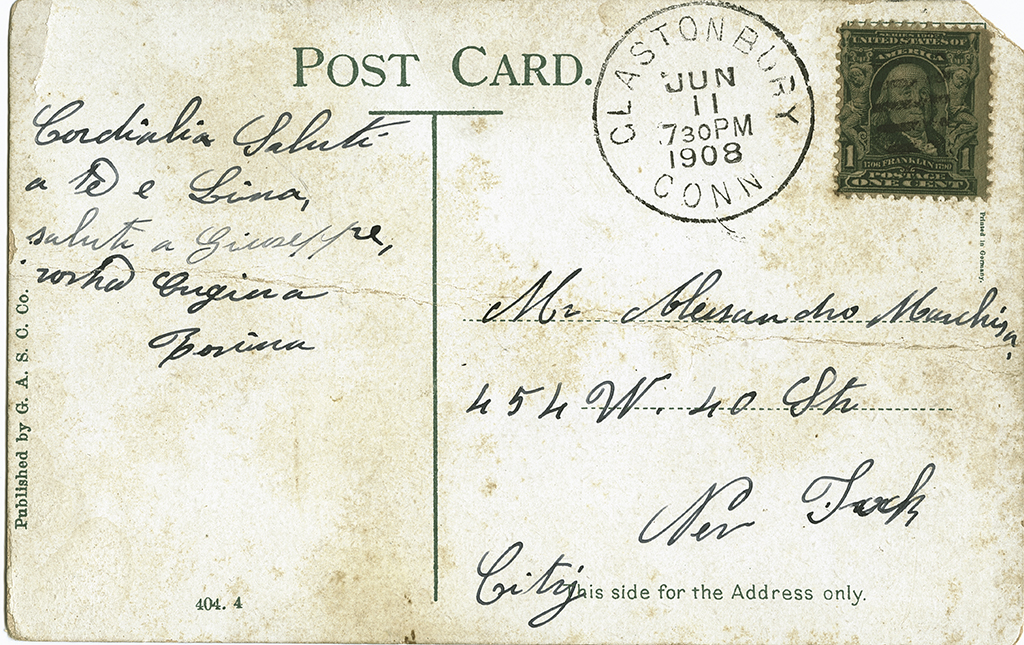 POST CARD.
GLASTONBURY
JUN
11
730PM
1908
CONN.
SERIES 1902
UNITED STATES OF
AMERICA
1 1706 FRANKLIN 1790 1
POSTAGE
ONE CENT
Printed in Germany.
Cordialia Saluti
a te e Lina,
saluti a Giuseppe,
Cugina
Published by G. A. S. C. Co.
404. 4
Mr Alessandro Marchisa.
454 W. 40 Str
New York
City
This side for the Address only.